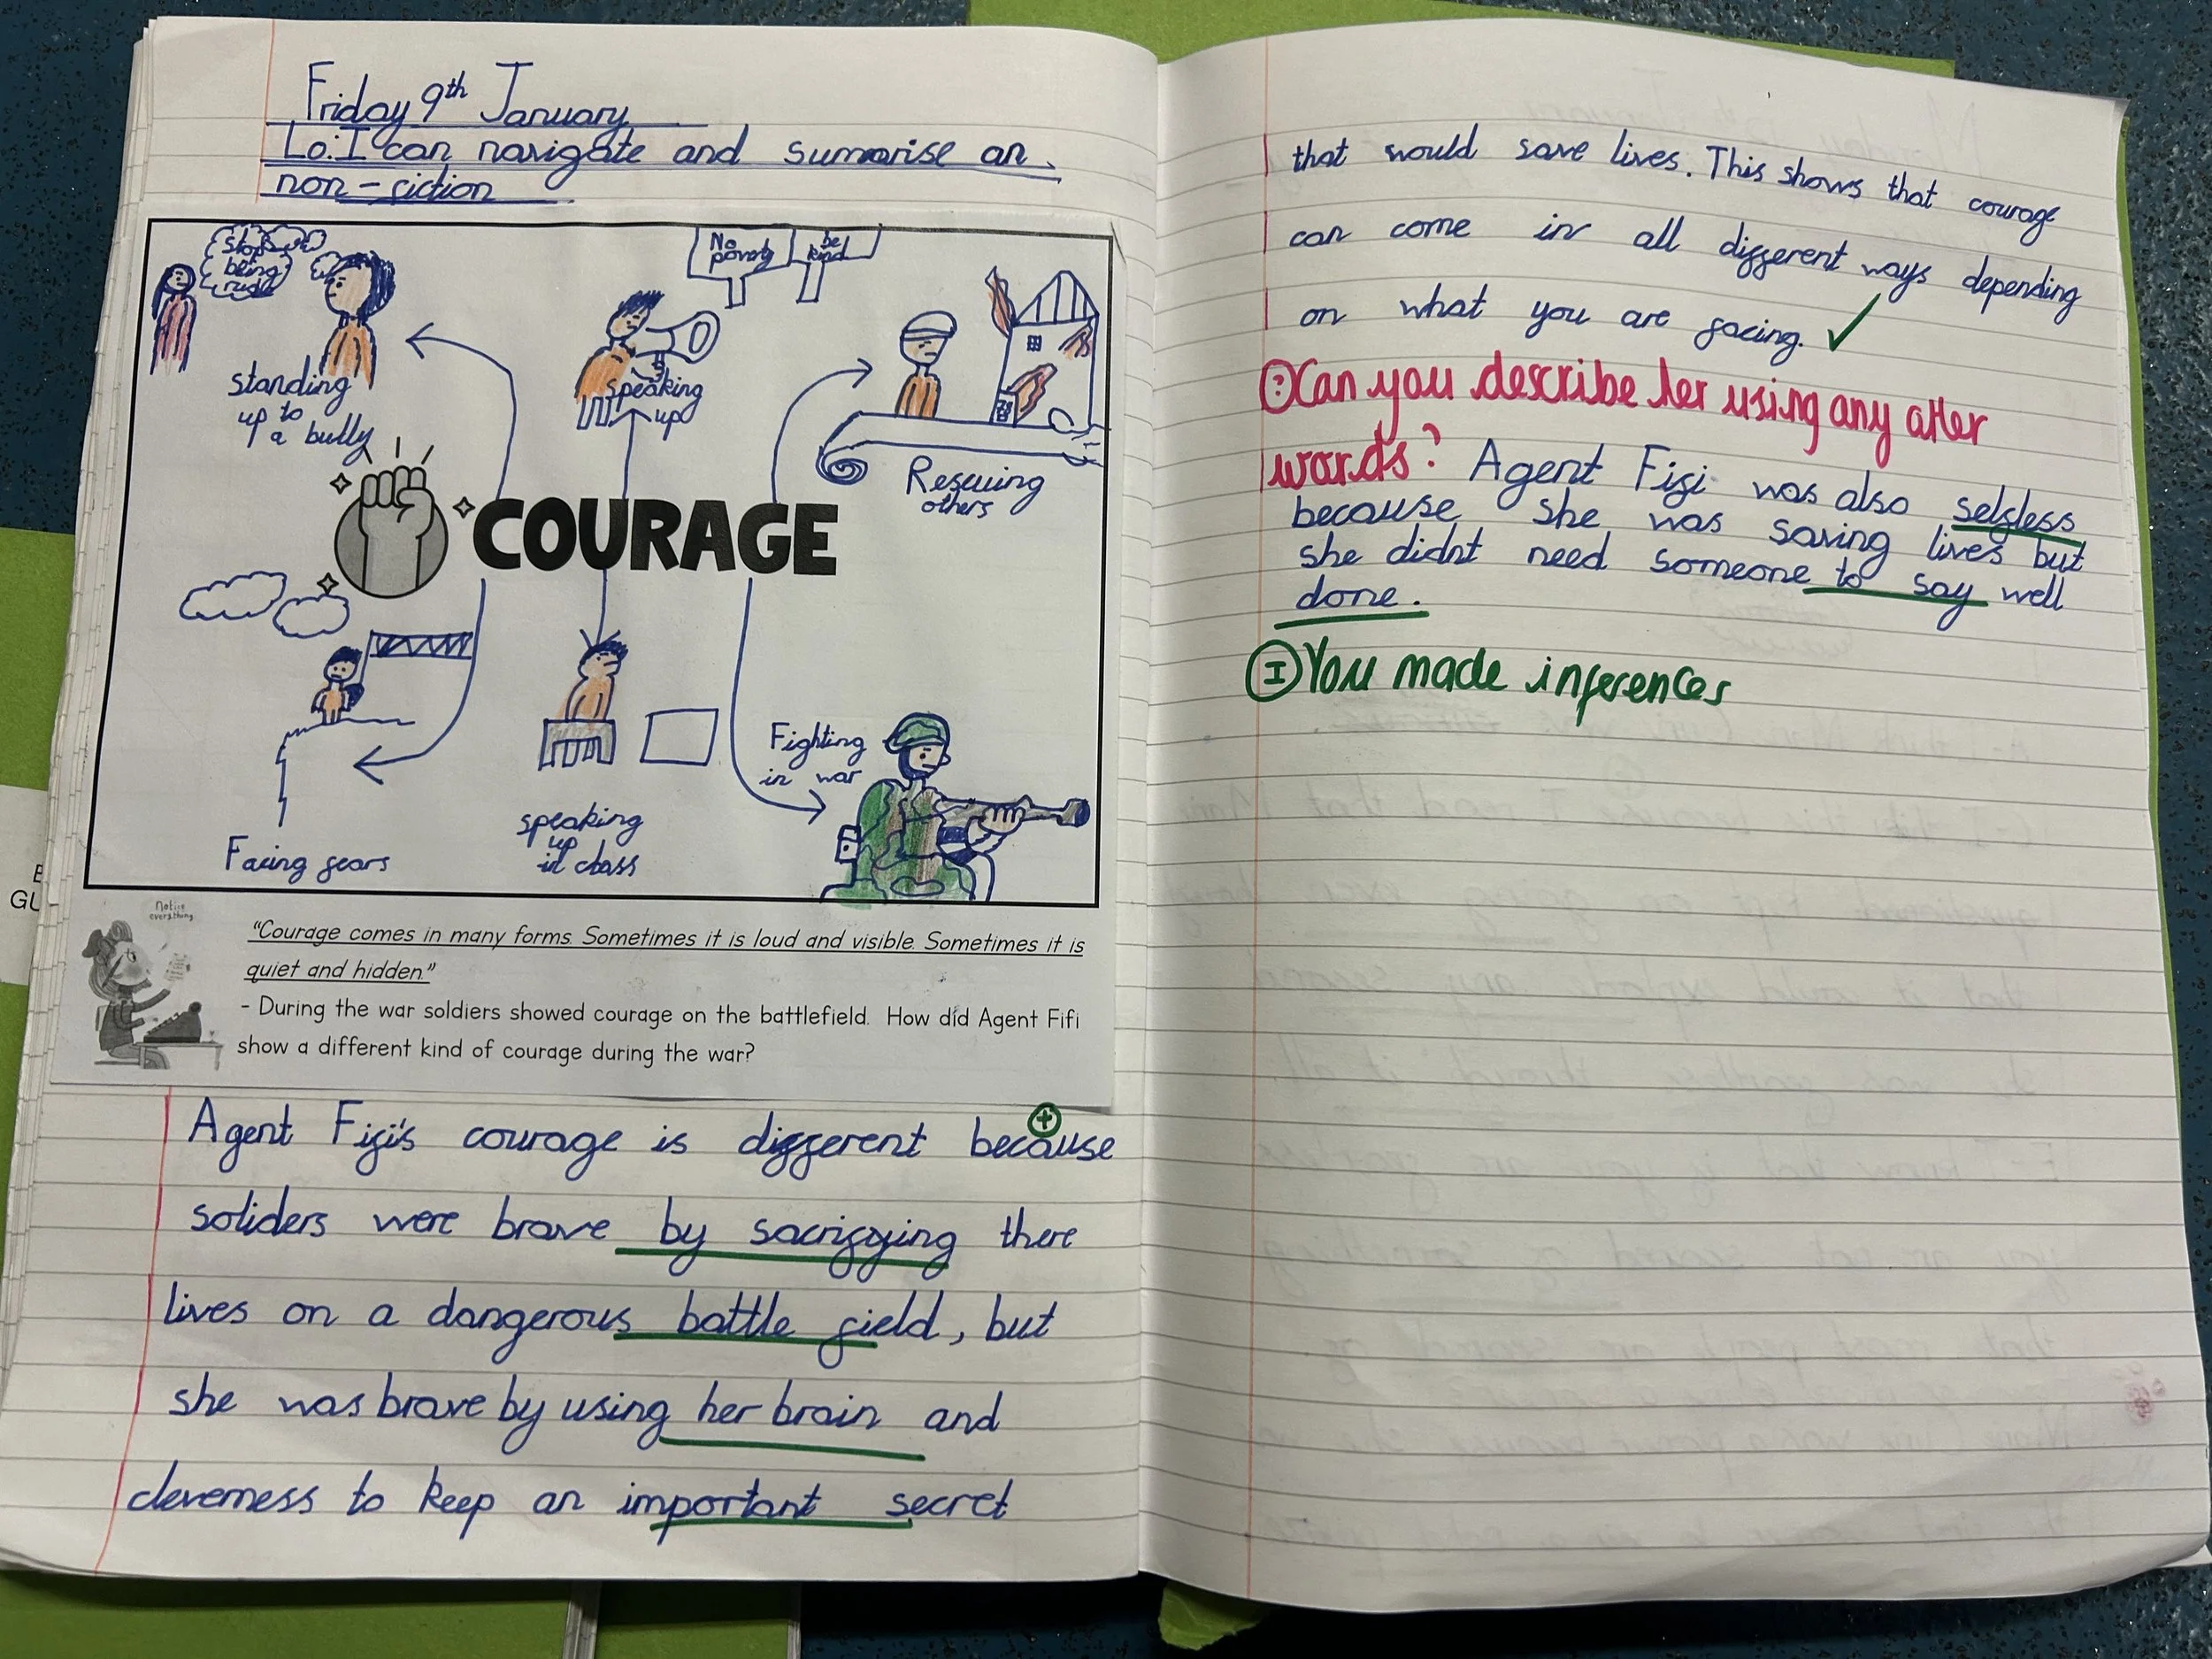 Friday 9th January
Lo: I can navigate and sumarise an
non-fiction
stop
being
rude
standing
up to
a bully
No
poverty
be
kind
speaking
up
Rescuing
others
COURAGE
Facing fears
speaking
up
in class
Fighting
in war
Notice
everything
"Courage comes in many forms. Sometimes it is loud and visible. Sometimes it is
quiet and hidden."
- During the war soldiers showed courage on the battlefield. How did Agent Fifi
show a different kind of courage during the war?
Agent Fifi's courage is different because
soliders were brave by sacrifying there
lives on a dangerous battle field, but
she was brave by using her brain and
cleverness to keep an important secret
that would save lives. This shows that courage
can come in all different ways depending
on what you are facing. ✓
Can you describe her using any other
words? Agent Fifi was also selfless
because she was saving lives but
she didnt need someone to say well
done.
I You made inferences